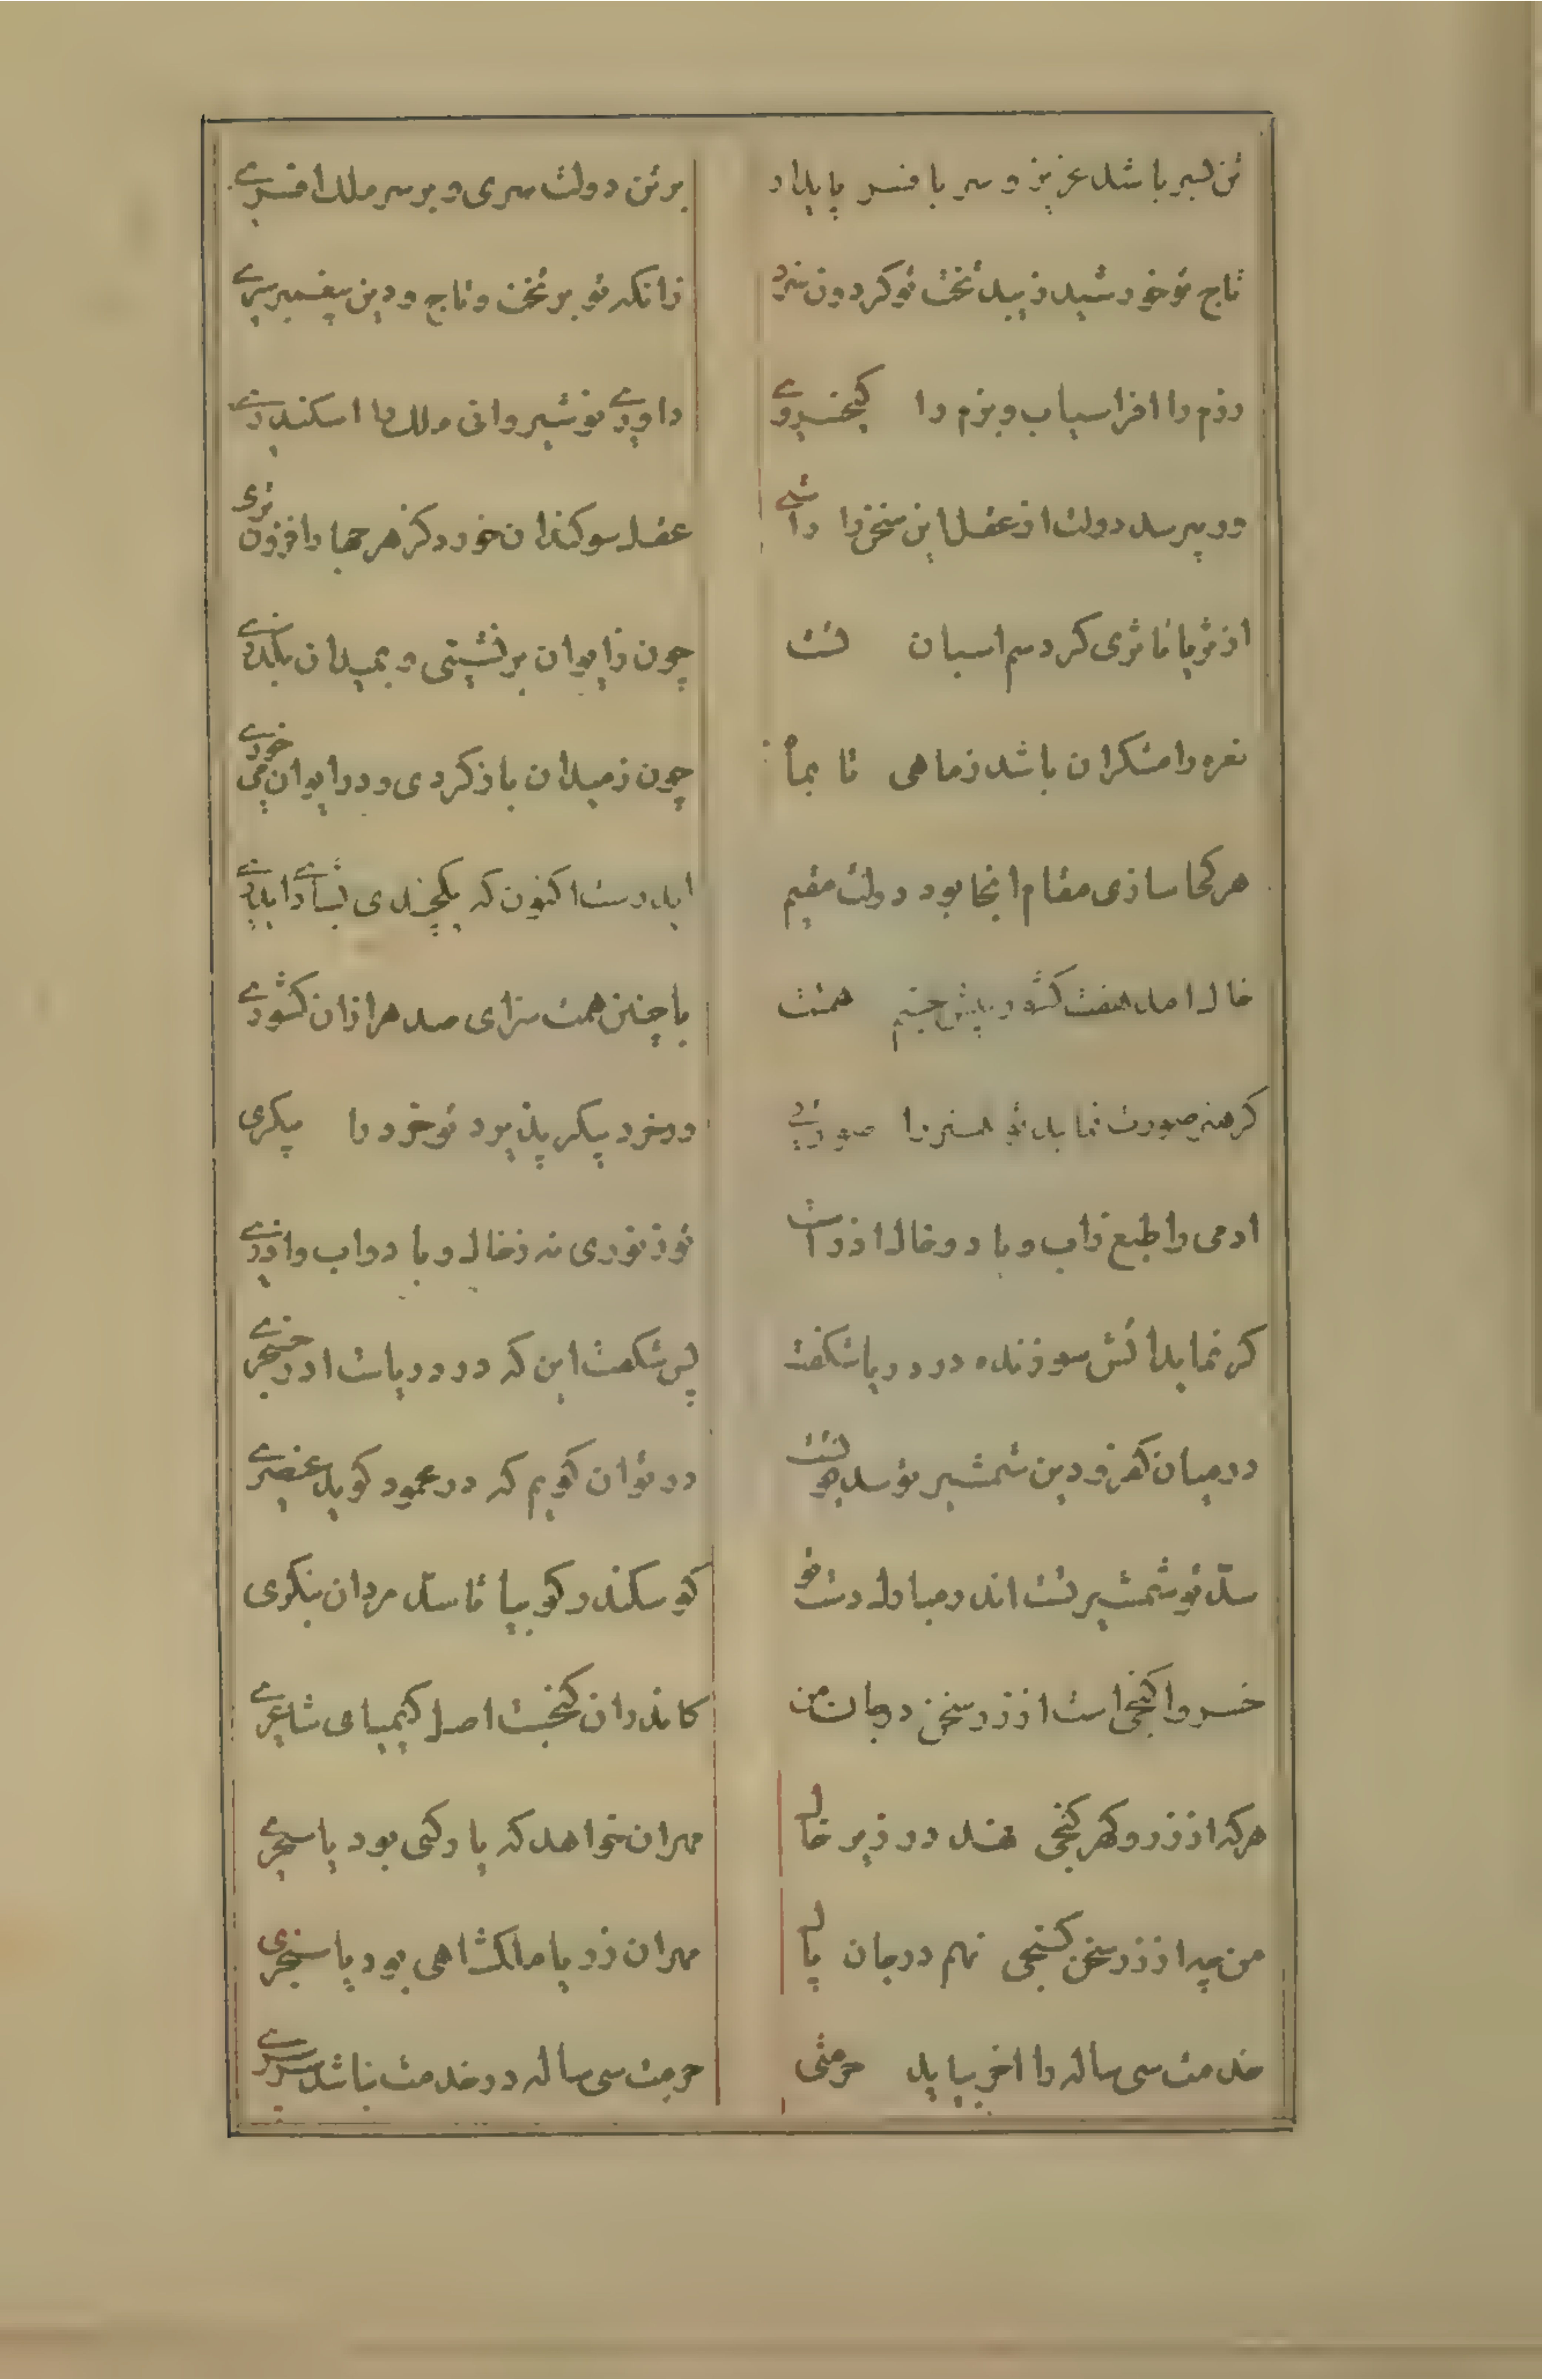 تن بسر باشد عزیز و سر بافسر پایدار
بر تن دولت سری و بر سر ملک افسری
تاج تو خورشید زیبد تخت تو کردون سزد
زانکه تو بر تخت و تاج و دین پیغمبر سری
رزم را افراسیاب و بزم را کیخسروی
داد را نوشیروانی ملک را اسکندری
ور بپرسد دولت از عقل این سخن را راستی
عقل سوکندان خورد کز هر جهاندار افزون تری
از ثریا تا ثری کرد سم اسبان تست
چون ز ایوان برنشینی و بمیدان بکذری
نعره رامشکران باشد ز ماهی تا بماه
چون ز میدان باز کردی و در ایوان می خوری
هر کجا سازی مقام انجا بود دولت مقیم
ایدرست اکنون که یکچندی بشادی ایدری
خاک امد هفت کشور پیش چشم همتت
با چنین همت سزای صد هزاران کشوری
کر هنر صورت نماید تو هنر را صورتی
ور خرد پیکر پذیرد تو خرد را پیکری
ادمی را طبع ز اب و باد و خاک اذرست
تو ز نوری نه ز خاک و باد و اب و اذری
کر نماید اتش سوزنده در دریا شکفت
بس شکفت این که در دریاست اذر خنجری
در میان کفر و دین شمشیر تو سد قویست
در تو ان کویم که در محمود کوید عنصری
سد تو شمشیر تست اندر مبارک دست تو
کو سکندر کو بیا تا سد مردان بنکری
خسروا کنجی است از زر سخن در جان من
کاندران کنجست اصل کیمیای شاعری
هر که از زر و کهر کنجی نهد در زیر خاک
مهر ان خواهد که یا رکنی بود یا سنجری
من چه از زر سخن کنجی نهم در جان پاک
مهر ان زر یا ملکشاهی بود یا سنجری
خدمت سی ساله را اخر بباید حرمتی
حرمت سی ساله در خدمت نباشد سرسری